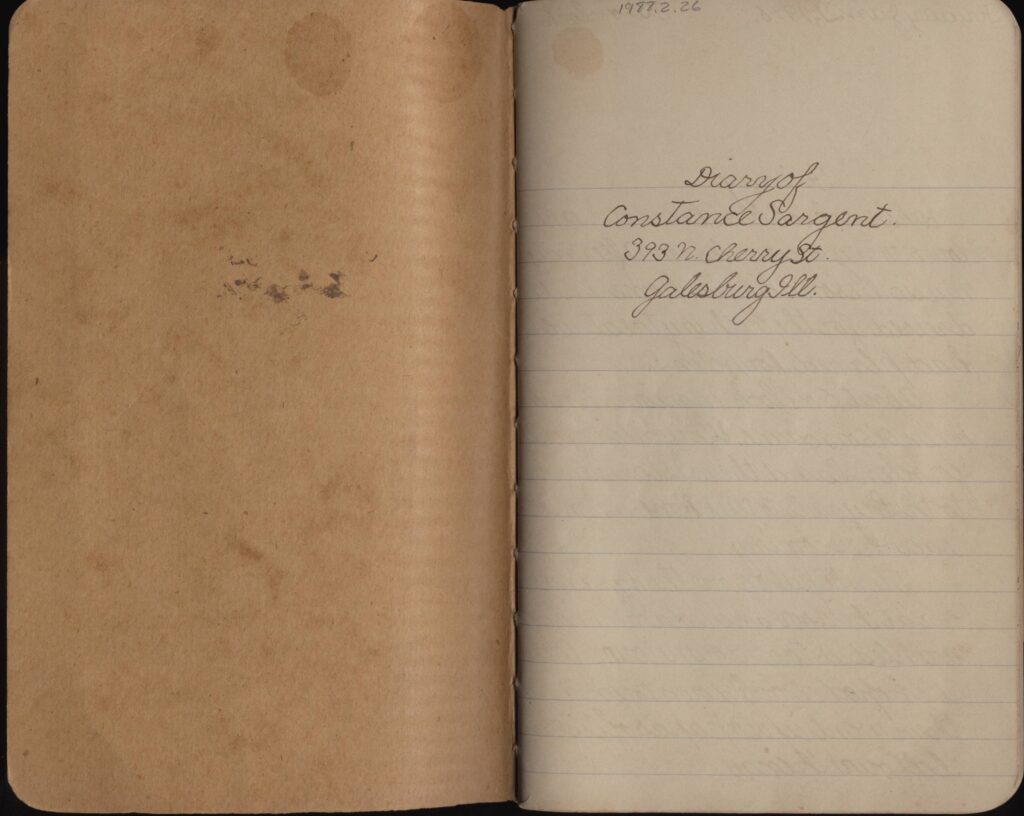 1988.2.26
Diary of
Constance Sargent.
393 N. Cherry St.
Galesburg Ill.